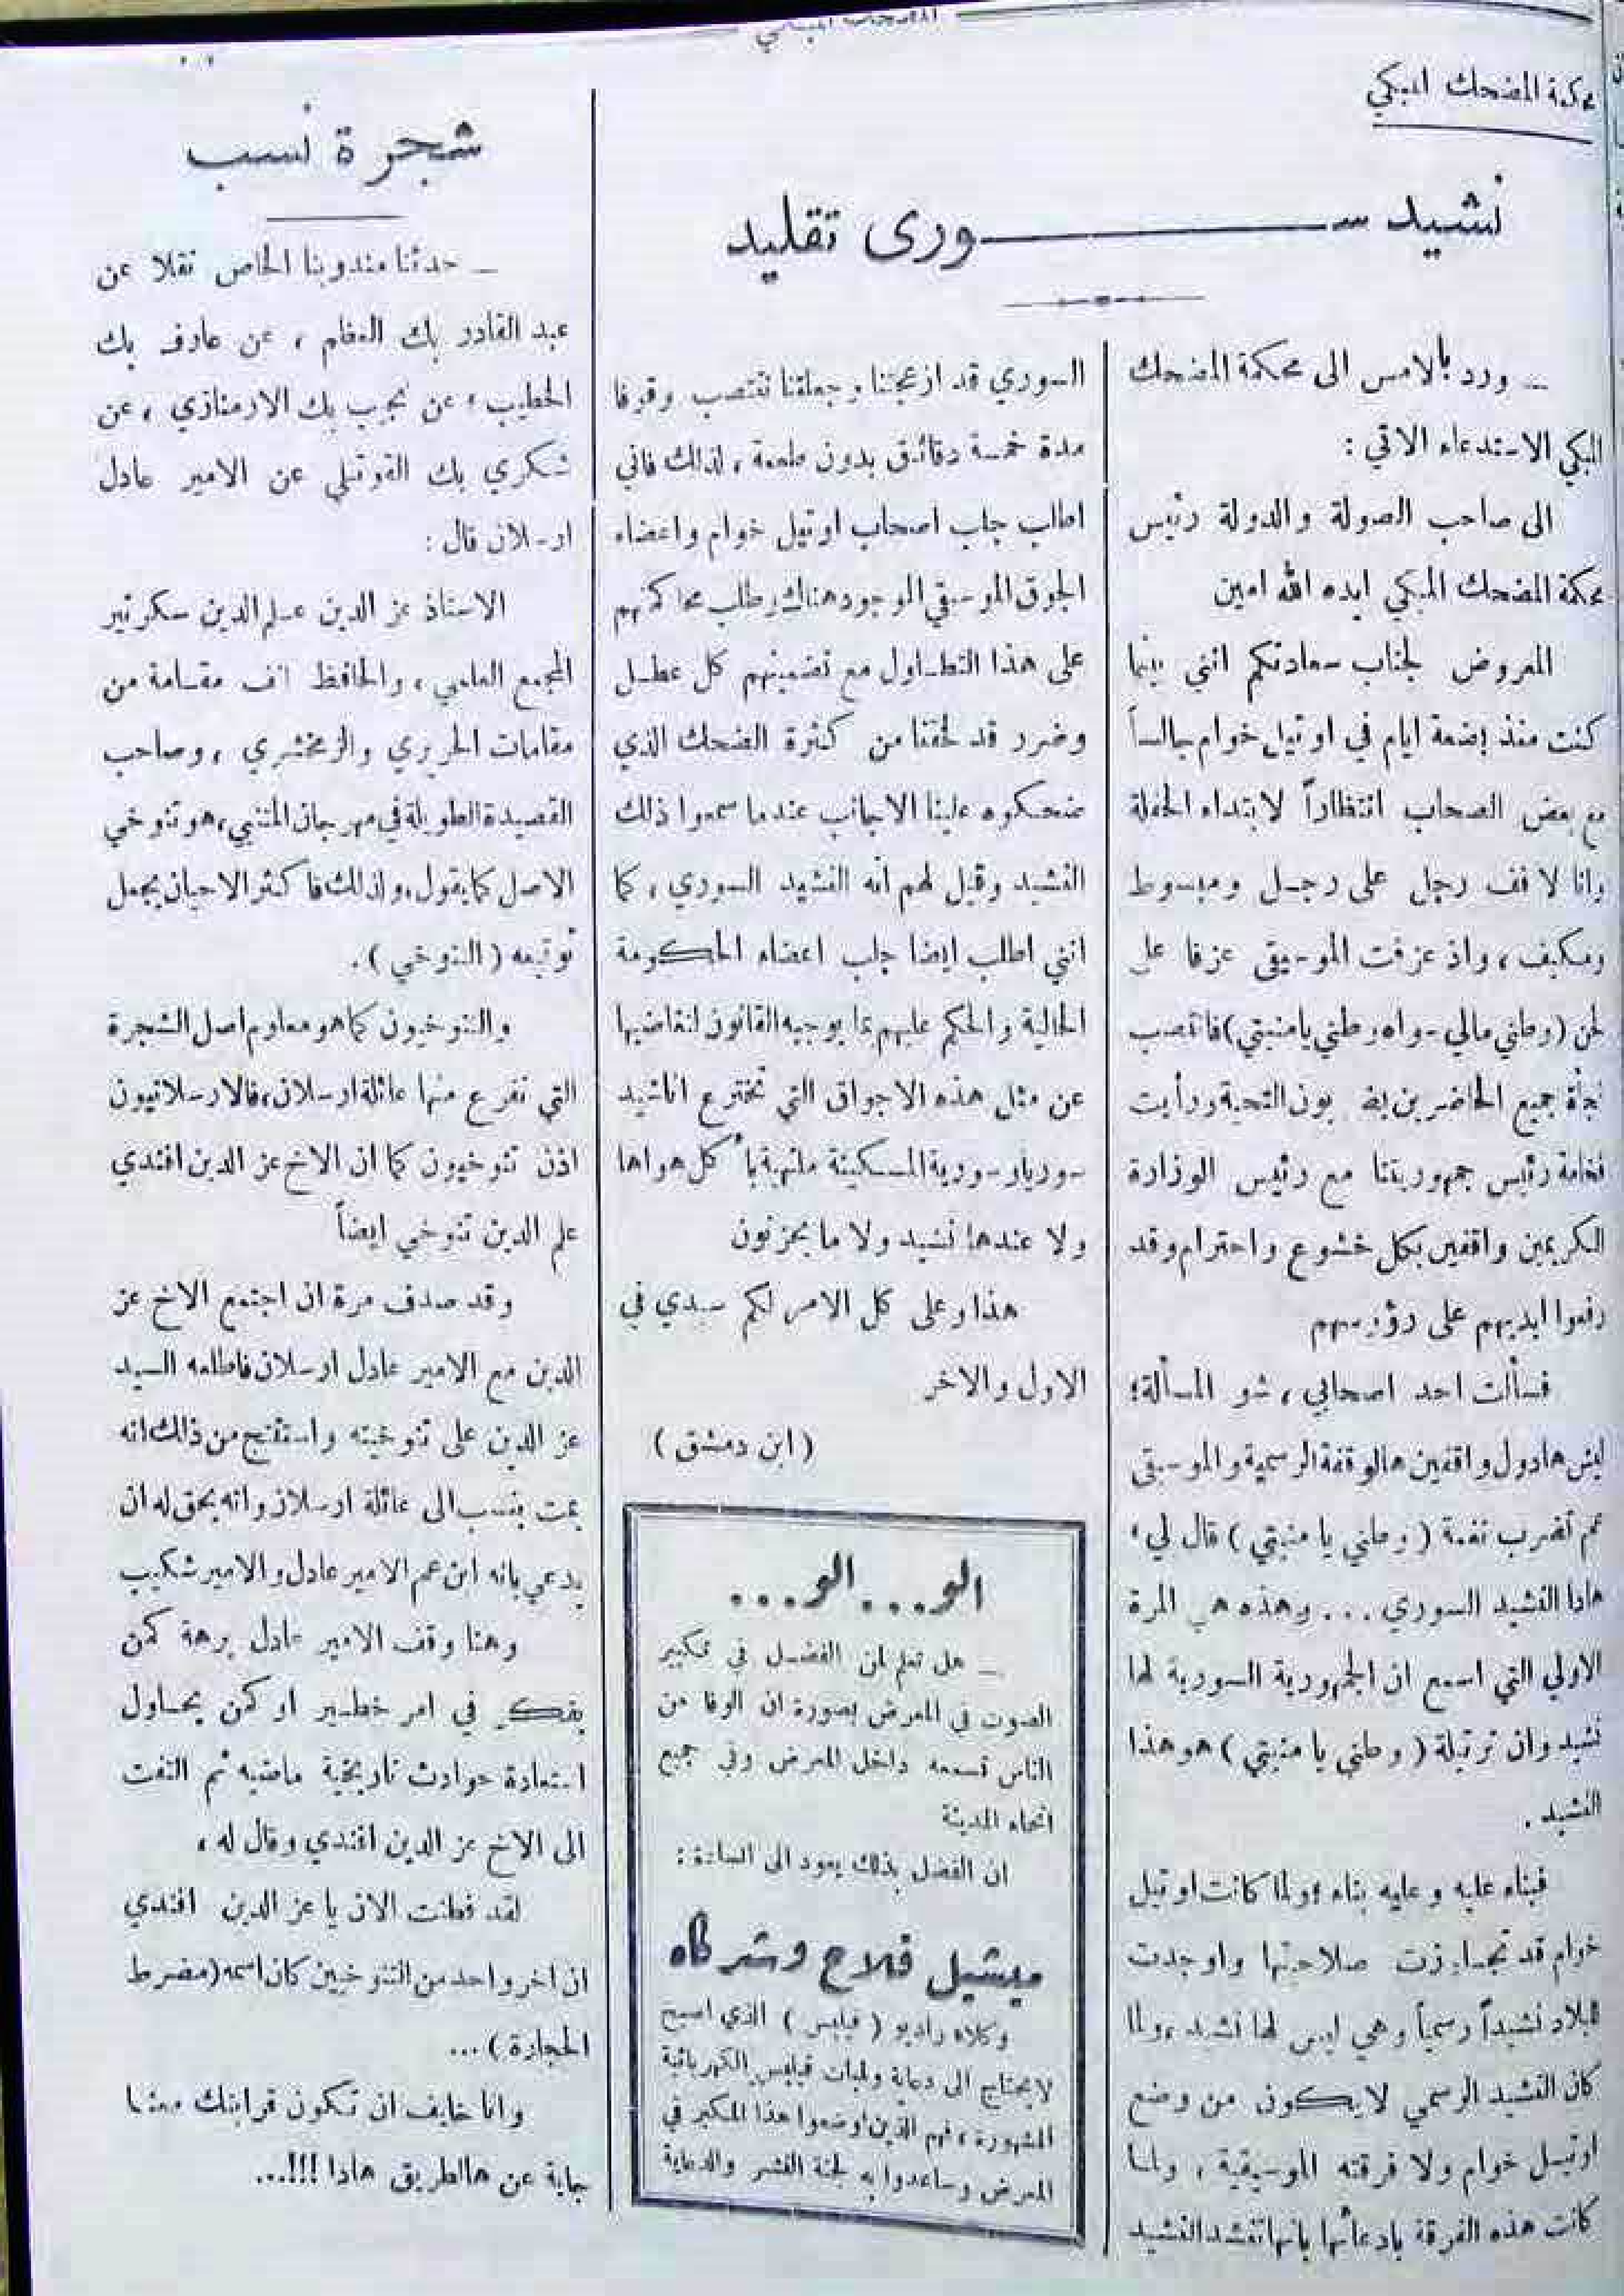 المضحك المبكي
محكمة المضحك المبكي
نشيد ســـوري تقليد
ـ ورد بالامس الى محكمة المضحك
المبكي الاستدعاء الاتي :
الى صاحب الصولة والدولة رئيس
محكمة المضحك المبكي ايده الله امين
المعروض لجناب سعادتكم انني بينما
كنت منذ بضعة ايام في اوتيل خوام جالساً
مع بعض الصحاب انتظاراً لابتداء الحفلة
وانا لافف رجل على رجل ومبسوط
ومكيف ، واذ عزفت الموسيقى عزفا على
لحن (وطني مالي سواه وطني يا منيتي) فانتصب
فجأة جميع الحاضرين يضربون التحية ورأيت
فخامة رئيس جمهوريتنا مع رئيس الوزارة
الكريمين واقفين بكل خشوع واحترام وقد
رفعوا ايديهم على رؤوسهم
فسألت احد اصحابي ، شو المسألة ؛
ليش هادول واقفين هالوقفة الرسمية والموسيقى
عم تضرب نغمة ( وطني يا منيتي ) قال لي ،
هادا النشيد السوري ... وهذه هي المرة
الاولى التي اسمع ان الجمهورية السورية لها
نشيد وان ترتيلة ( وطني يا منيتي ) هو هذا
النشيد .
فبناء عليه وعليه بناء ؛ ولما كانت اوتيل
خوام قد تجاوزت صلاحيتها واوجدت
للبلاد نشيداً رسمياً وهي ليس لها نشيد ، ولما
كان النشيد الرسمي لا يكون من وضع
اوتيل خوام ولا فرقته الموسيقية ، ولما
كانت هذه الفرقة بادعائها بانها تنشد النشيد
السوري قد ازعجتنا وجعلتنا ننتصب وقوفا
مدة خمسة دقائق بدون طعمة ، لذلك فاني
اطلب جلب اصحاب اوتيل خوام واعضاء
الجوق الموسيقي الموجود هناك وطلب محاكمتهم
على هذا التطاول مع تضمينهم كل عطل
وضرر قد لحقنا من كثرة الضحك الذي
ضحكوه علينا الاجانب عندما سمعوا ذلك
النشيد وقيل لهم انه النشيد السوري ، كما
انني اطلب ايضا جلب اعضاء الحكومة
الحالية والحكم عليهم بما يوجبه القانون لتغاضيها
عن مثل هذه الاجواق التي تخترع اناشيد
سوريا وسورية المسكينة ملتهية بأكل هواها
ولا عندها نشيد ولا ما يحزنون
هذا وعلى كل الامر لكم سيدي في
الاول والاخر
( ابن دمشق )
الو ... الو ...
ـ هل تعلم لمن الفضل في تكبير
الصوت في المعرض بصورة ان الوفا من
الناس تسمعه داخل المعرض وفي جميع
انحاء المدينة
ان الفضل بذلك يعود الى السادة :
ميشيل فلاح وشركاه
وكلاء راديو ( فيليبس ) الذي اصبح
لا يحتاج الى دعاية ولمبات فيليبس الكهربائية
المشهورة ، فهم الذين اوضعوا هذا المكبر في
المعرض وساعدوا به لجنة النشر والدعاية
شجرة نسب
ـ حدثنا مندوبنا الخاص نقلا عن
عبد القادر بك العظم ، عن عارف بك
الخطيب ، عن نجيب بك الارمنازي ، عن
شكري بك القوتلي عن الامير عادل
ارسلان قال :
الاستاذ عز الدين علم الدين سكرتير
المجمع العلمي ، والحافظ الف مقامة من
مقامات الحريري والزمخشري ، وصاحب
القصيدة الطويلة في مهرجان المتنبي ، هو تنوخي
الاصل كما يقول ، ولذلك فاكثر الاحيان يجعل
توقيعه ( التنوخي ) .
والتنوخيون كما هو معلوم اصل الشجرة
التي تفرع منها عائلة ارسلان ، فالارسلانيون
اذن تنوخيون كما ان الاخ عز الدين افندي
علم الدين تنوخي ايضاً
وقد صدف مرة ان اجتمع الاخ عز
الدين مع الامير عادل ارسلان فاطلعه السيد
عز الدين على تنوخيته واستنتج من ذلك انه
يمت بنسب الى عائلة ارسلان وانه يحق له ان
يدعي بانه ابن عم الامير عادل والامير شكيب
وهنا وقف الامير عادل برهة كمن
يفكر في امر خطير او كمن يحاول
استعادة حوادث تاريخية ماضيه ثم التفت
الى الاخ عز الدين افندي وقال له ،
لقد فطنت الان يا عز الدين افندي
ان اخر واحد من التنوخيين كان اسمه (مضرط
الحجارة) ...
وانا خايف ان تكون قرابتك معنا
جاية عن هالطريق هادا !!!...